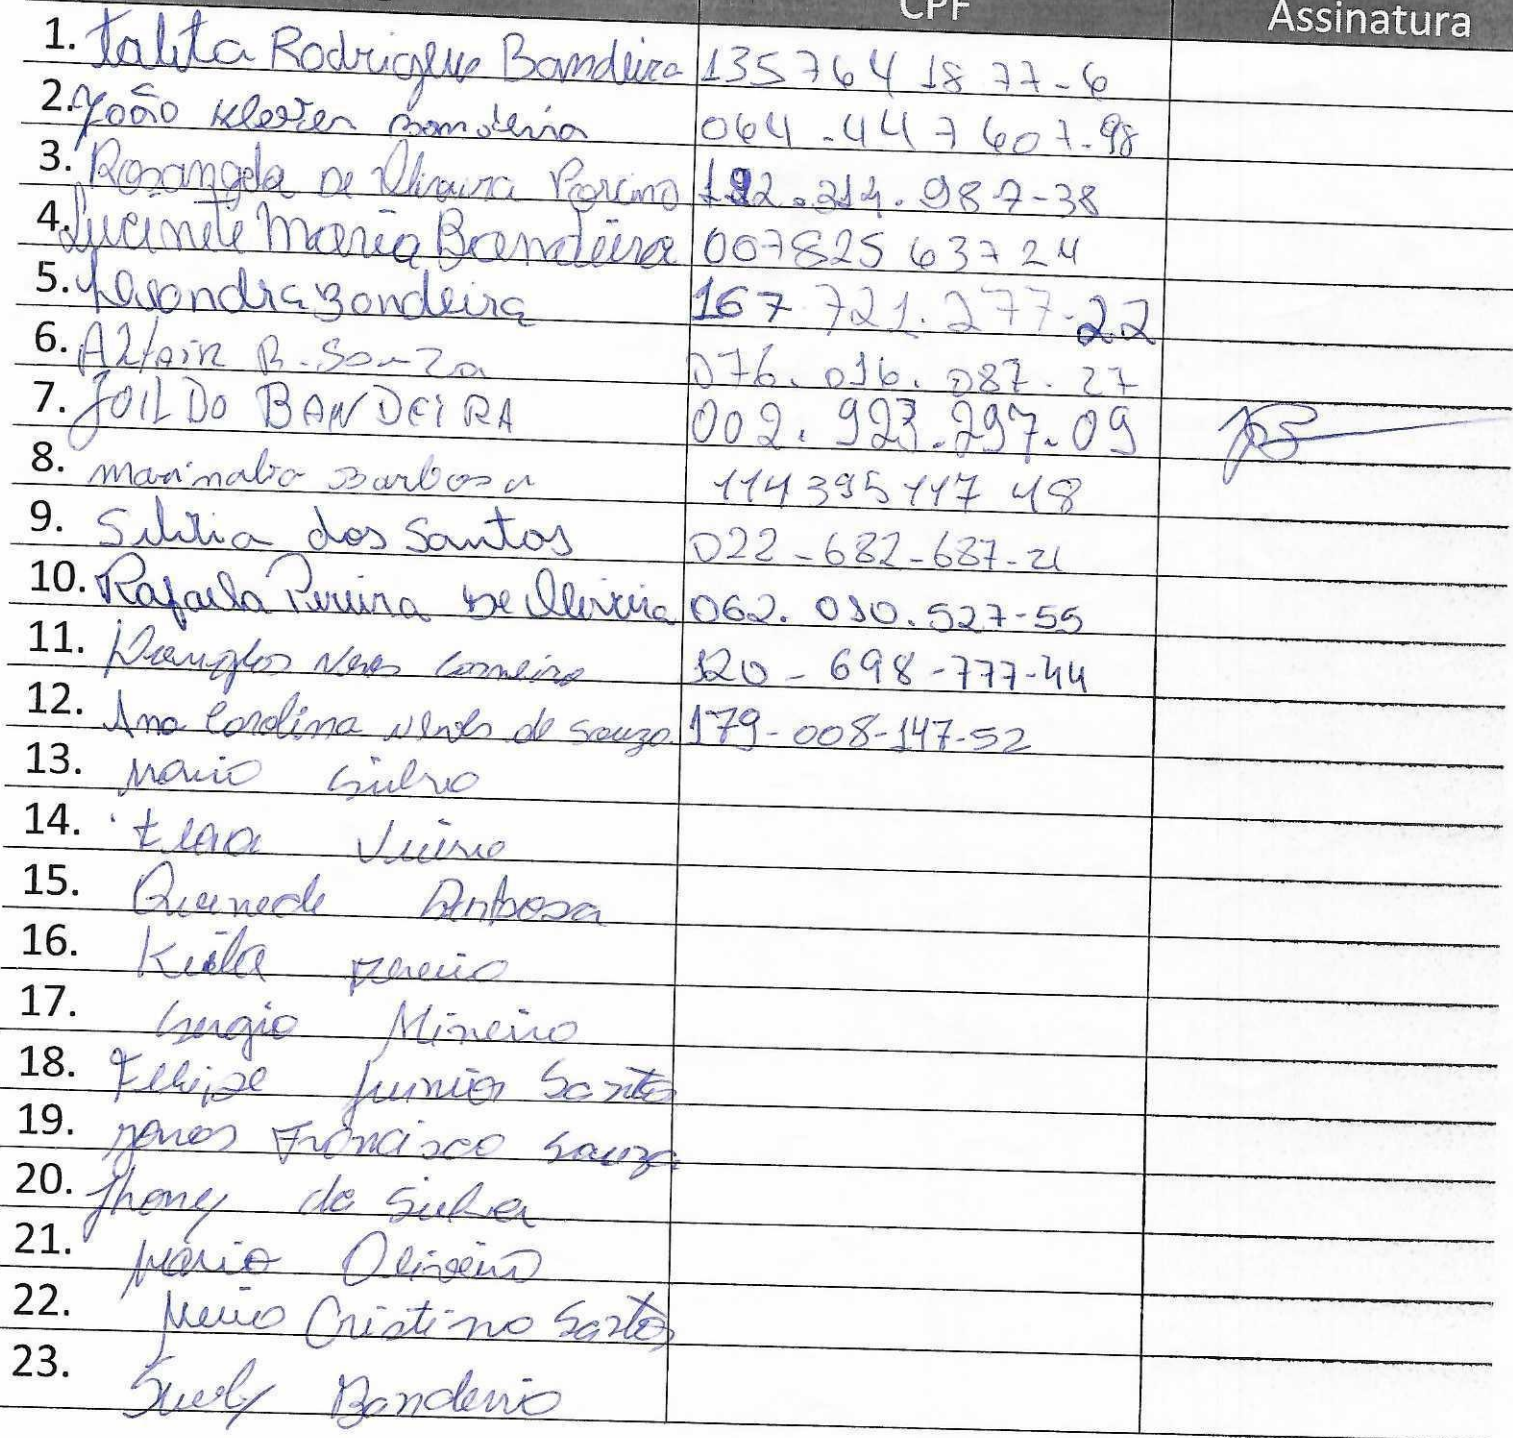 CPF Assinatura
1. Talita Rodrigues Bandeira 135764 18 77-6
2. João Kleber Bandeira 064-447 607-98
3. Rosangela de Oliveira Porcino 192.314.987-38
4. Lucinete Maria Bandeira 007825 637 24
5. Bandeira 167 721.277-22
6. Altair R. Souza 076.016.087.27
7. JOILDO BANDEIRA 002.923.297.09
8. Marinalia Barbosa 114395117 48
9. Silvia dos Santos 022-682-687-21
10. Rafaela Pereira de Oliveira 062.010.527-55
11. Douglas Neves Carneiro 120-698-777-44
12. Ana Carolina Neves de Souza 179-008-147-52
13. Maria Silva
14.
15. Barbosa
16. Keila Pereira
17. Sergio Mineiro
18. Felipe Junior Santos
19. Francisco Souza
20. Jhony da Silva
21. Maria Oliveira
22. Maria Cristina Santos
23. Suely Bandeira